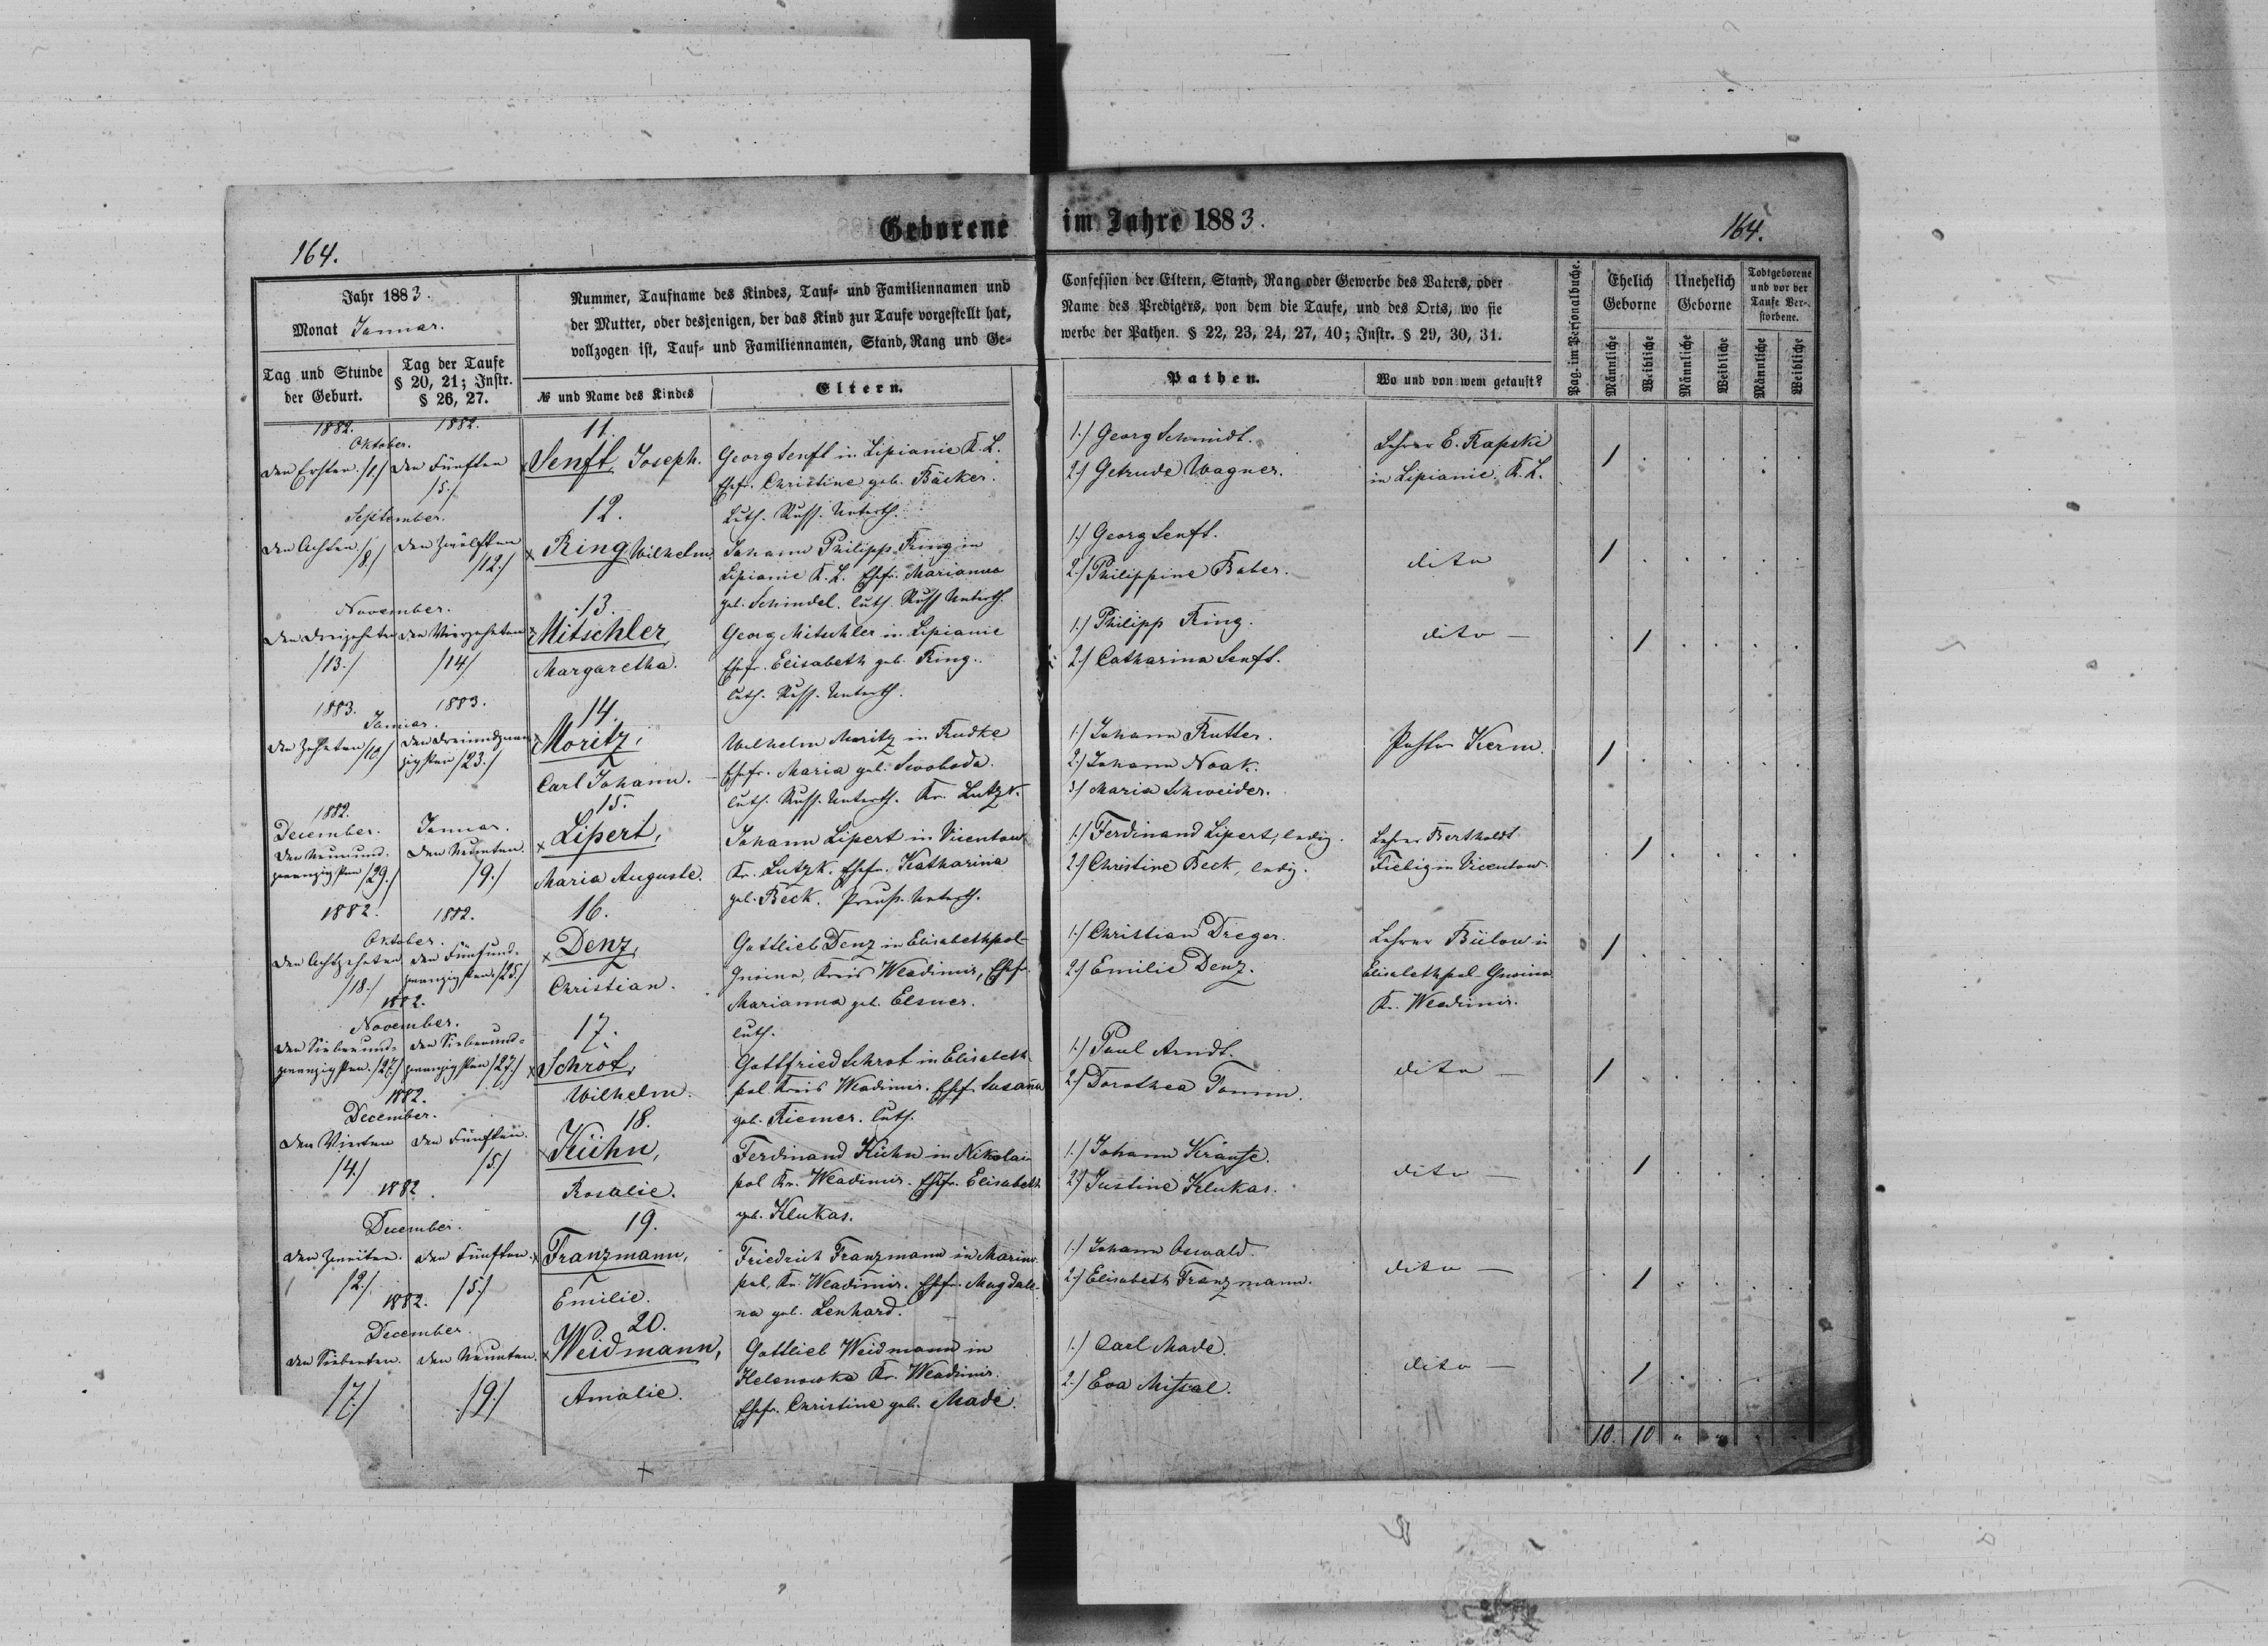 Geborene im Jahre 1883.
164.
164.
Jahr 1883.
Monat Januar.
Tag und Stunde der Geburt.
Tag der Taufe § 20, 21; Instr. § 26, 27.
Nummer, Taufname des Kindes, Tauf- und Familiennamen und
der Mutter, oder desjenigen, der das Kind zur Taufe vorgestellt hat,
vollzogen ist, Tauf- und Familiennamen, Stand, Rang und Ge-
№ und Name des Kindes
Eltern.
Confession der Eltern, Stand, Rang oder Gewerbe des Vaters, oder
Name des Predigers, von dem die Taufe, und des Orts, wo sie
werbe der Pathen. § 22, 23, 24, 27, 40; Instr. § 29, 30, 31.
Pathen.
Wo und von wem getauft?
Pag. im Personalbuche.
Ehelich Geborne
Unehelich Geborne
Todtgeborene und vor der Taufe Verstorbene.
Männliche
Weibliche
Männliche
Weibliche
Männliche
Weibliche
1882. 1882.
Oktober.
den Ersten /1./ den Fünften /5./
11.
Senft, Joseph.
Georg Senft in Lipianie K. L.
Ehefr. Christine geb. Bäcker.
Luth. Russ. Unterth.
1.) Georg Schmidt.
2.) Getrude Wagner.
Lehrer E. Rapski
in Lipianie. K. L.
1
September.
den Achten /8./ den Zwölften /12./
12.
Ring Wilhelm.
Johann Philipp Ring in
Lipianie K. L. Ehefr. Marianna
geb. Schindel. luth. Russ Unterth.
1.) Georg Senft.
2.) Philippine Faber.
dito
1
November.
den Dreizehnten /13./ den Vierzehnten /14/
13.
Mitschler
Margaretha.
Georg Mitschler in Lipianie
Ehefr. Elisabeth geb. Ring.
luth. Russ. Unterth.
1.) Philipp Ring.
2.) Catharina Senft.
dito —
1
1883. 1883.
Januar.
den Zehnten /10/ den Dreiundzwanzigsten /23./
14.
Moritz,
Carl Johann.
Wilhelm Moritz in Rudke
Ehefr. Maria geb. Swoboda.
luth. Russ. Unterth. Kr. Lutzk.
1.) Johann Rutter.
2.) Johann Noak.
3.) Maria Schweider.
Pastor Kerm.
1
1882.
December. Januar.
den Neunundzwanzigsten /29./ den Neunten. /9./
15.
Lipert,
Maria Auguste.
Johann Lipert in Vicentow
Kr. Lutzk. Ehefr. Katharina
geb. Beck. Preuß. Unterth.
1.) Ferdinand Lipert, ledig.
2.) Christine Beck, ledig.
Lehrer Bertholdt
Fiebig in Vicentow.
1
1882. 1882.
Oktober.
den Achtzehnten /18./ den Fünfundzwanzigsten /25./
16.
Denz,
Christian.
Gottlieb Denz in Elisabethpol-
Gnoina, Kreis Wladimir, Ehefr.
Marianna geb. Elsner.
luth.
1.) Christian Dreger.
2.) Emilie Denz.
Lehrer Bülow in
Elisabethpol-Gnoina
Kr. Wladimir.
1
1882.
November.
den Siebenundzwanzigsten. /27./ den Siebenundzwanzigsten /27./
17.
Schröt,
Wilhelm.
Gottfried Schrot in Elisabeth-
pol Kreis Wladimir. Ehefr. Susanna
geb. Riemer. luth.
1.) Paul Arndt.
2.) Dorothea Tomm.
dito —
1
1882.
December.
den Vierten /4./ den Fünften. /5./
18.
Kühn,
Rosalie.
Ferdinand Kühn in Nikolai-
pol Kr. Wladimir. Ehefr. Elisabeth
geb. Klukas.
1.) Johann Krause.
2.) Justine Klukas.
dito —
1
1882.
December.
den Zweiten. /2./ den Fünften. /5./
19.
Franzmann,
Emilie.
Friedrich Franzmann in Marino-
pol, Kr. Wladimir. Ehefr. Magdale-
na geb. Lenhard.
1.) Johann Oswald.
2.) Elisabeth Franzmann.
dito —
1
1882.
December.
den Siebenten. /7./ den Neunten. /9./
20.
Weidmann,
Amalie.
Gottlieb Weidmann in
Helenowka Kr. Wladimir.
Ehefr. Christine geb. Made.
1.) Carl Made.
2.) Eva Mitzal.
dito —
1
10. 10 " "